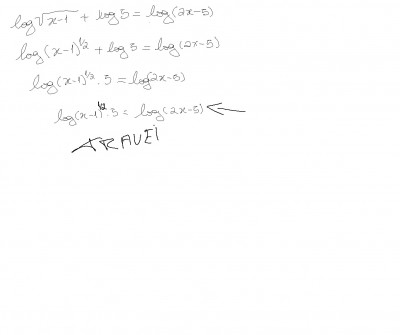 log√x-1 + log 5 = log(2x-5)
log(x-1)^1/2 + log 5 = log(2x-5)
log(x-1)^1/2 . 5 = log2x-5)
log(x-1)^1/2 . 5 = log(2x-5) ←
TRAVEI